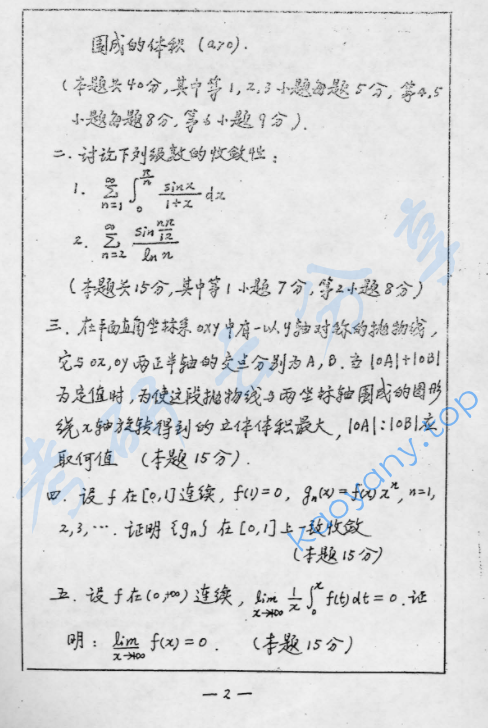 围成的体积 (a>0).
(本题共40分,其中第1,2,3小题每题5分,第4,5
小题每题8分,第6小题9分).
二. 讨论下列级数的收敛性:
1. ∑_{n=1}^{∞} ∫_0^{π/n} sinx/(1+x) dx
2. ∑_{n=2}^{∞} sin(nπ/12)/ln n
(本题共15分,其中第1小题7分,第2小题8分)
三. 在平面直角坐标系oxy中有一以y轴对称的抛物线,
它与ox,oy两正半轴的交点分别为A,B. 当|OA|+|OB|
为定值时,为使这段抛物线与两坐标轴围成的图形
绕x轴旋转得到的立体体积最大, |OA|:|OB|应
取何值 (本题15分).
四. 设f在[0,1]连续, f(1)=0, g_n(x)=f(x)x^n, n=1,
2,3,…. 证明{g_n}在[0,1]上一致收敛
(本题15分)
五. 设f在(0,∞)连续, lim_{x→∞} 1/x ∫_0^x f(t)dt=0. 证
明: lim_{x→∞} f(x)=0. (本题15分)
— 2 —
kaoyany.top